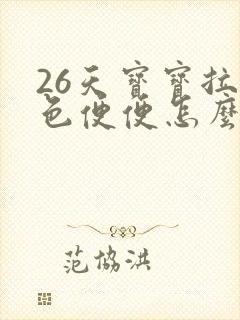 26天寶寶拉
色便便怎麼
范協洪